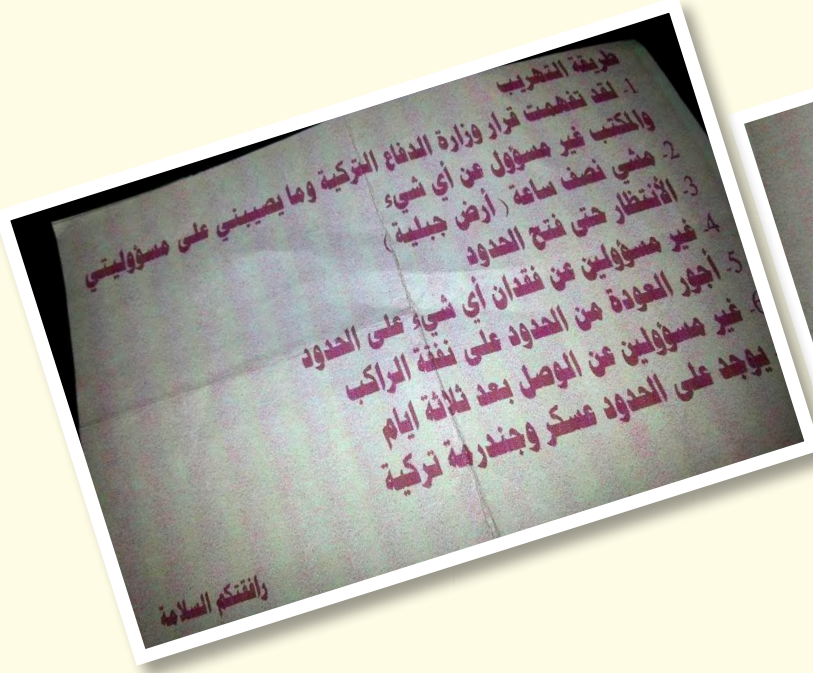 طريقة التهريب
1. لقد تفهمت قرار وزارة الدفاع التركية وما يصيبني على مسؤوليتي
والمكتب غير مسؤول عن أي شيء
2. مشي نصف ساعة (أرض جبلية)
3. الأنتظار حتى فتح الحدود
4. غير مسؤولين عن فقدان أي شيء على الحدود
5. أجور العودة من الحدود على نفقة الراكب
6. غير مسؤولين عن الوصل بعد ثلاثة ايام
يوجد على الحدود عسكر وجندرمة تركية
رافقتكم السلامة